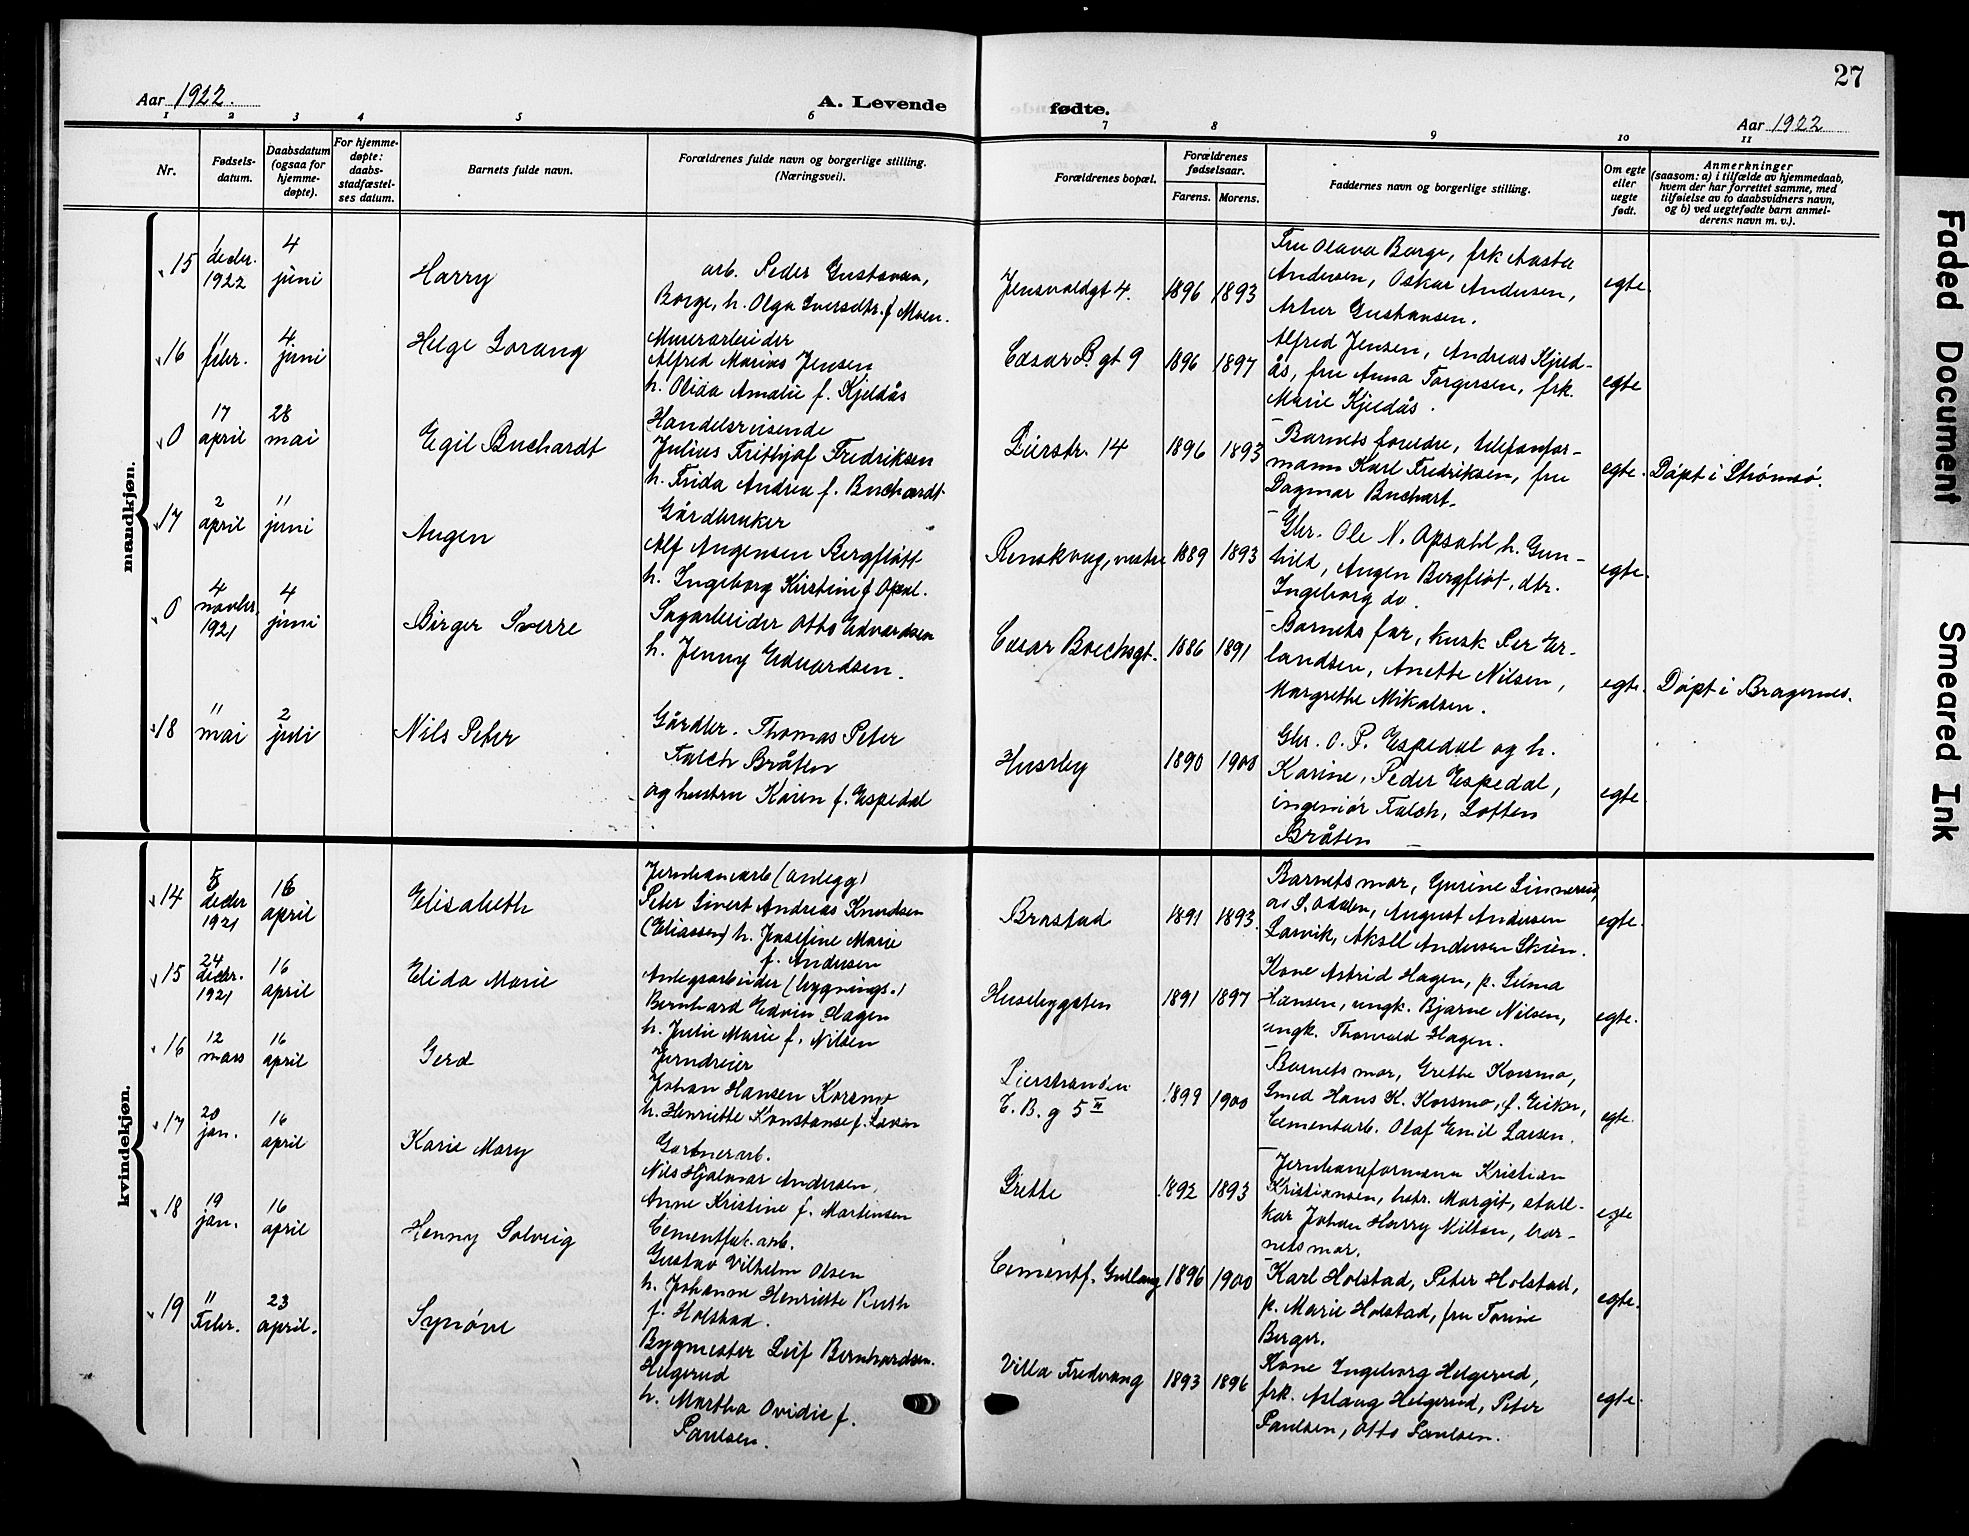 27
Aar 1922.
A. Levende fødte.
Aar 1922
1 2 3 4 5 6 7 8 9 10 11
Nr.
Fødsels-
datum.
Daabsdatum
(ogsaa for
hjemme-
døpte).
For hjemme-
døpte:
daabs-
stadfæstel-
ses datum.
Barnets fulde navn.
Forældrenes fulde navn og borgerlige stilling.
(Næringsvei).
Forældrenes bopæl.
Forældrenes
fødselsaar.
Farens. Morens.
Faddernes navn og borgerlige stilling.
Om egte
eller
uegte
født.
Anmerkninger
(saasom: a) i tilfælde av hjemmedaab,
hvem der har forrettet samme, med
tilføielse av to daabsvidners navn,
og b) ved uegtefødte barn anmel-
derens navn m. v.).
mandkjøn.
15
decbr.
1922
4
juni
Harry
arb. Peder Gustavsen,
Borge, h. Olga Iversdtr. f. Moen.
Jensvoldgt 4.
1896 1893
Fru Olava Borge, frk Aasta
Andersen, Oskar Andersen,
Artur Gustavsen.
egte.
16
febr.
4
juni
Helge Lorang
Murerarbeider
Alfred Marius Jensen
h. Olida Amalie f. Kjeldås
Cæsar B. gt 9
1896 1897
Alfred Jensen, Andreas Kjeld-
ås, fru Anna Torgersen, frk.
Marie Kjeldås.
egte
0
17
april
28
mai
Egil Buchardt
Handelsreisende
Julius Frithjof Fredriksen
h. Frida Andrea f. Buchardt.
Lierstr. 14
1896 1893
Barnets foreldre, telefonfor-
mann Karl Fredriksen, fru
Dagmar Buchart.
egte.
Døpt i Strømsø.
17
2
april
11
juni
Augen
Gårdbruker
Alf Augensen Bergfløtt
h. Ingeborg Kirstine f Opsal.
Renskaug, vestre
1889 1893
Gbr. Ole N. Opsahl h. Gun-
hild, Augen Bergfløt, dtr.
Ingeborg do.
egte.
0
4
novbr.
1921
4
juni
Birger Sverre
Sagarbeider Otto Edvardsen
h. Jenny Edvardsen.
Cæsar Boechsgt.
1886 1891
Barnets far, kusk Per Er-
landsen, Anette Nilsen,
Margrethe Mikalsen.
egte.
Døpt i Bragernes.
18
11
mai
2
juli
Nils Peter
Gårdbr. Thomas Peter
Falch Bråten
og hustru Karen f. Espedal
Huseby
1890 1900
Gbr. O. P. Espedal og h.
Karine, Peder Espedal,
ingeniør Falch, Loften
Bråten
egte
kvindekjøn.
14
5
decbr
1921
16
april
Elisabeth
Jernbanearb (anlegg)
Peter Sivert Andreas Knudsen
(Eliassen) h. Josefine Marie
f. Andersen
Brastad
1891 1893.
Barnets mor, Gurine Linnerud,
August Andersen
Larvik, Aksel Andersen Skien.
egte.
15
24
decbr.
1921
16
april
Elida Marie
Anlegsarbeider (bygnings.)
Bernhard Edvin Hagen
h. Julie Marie f. Nilsen
Husebygaten
1891 1897
Kone Astrid Hagen, p. Selma
Hansen, ungk. Bjarne Nilsen,
ungk. Thorvald Hagen.
egte.
16
12
mars
16
april
Gerd
Jerndreier
Johan Hansen Korsmo
h. Henriette Konstanse f. Larsen
Lierstranden
C. B. g 5 II
1899 1900
Barnets mor, Grethe Korsmo,
Smed Hans K. Korsmo, f. Eiker,
Cementarb. Olaf Emil Larsen.
egte.
17
20
jan.
16
april
Karie Mary
Gartnerarb.
Nils Hjalmar Andersen,
Anne Kristine f. Martinsen
Grette
1892 1893
Jernbaneformann Kristian
Kristiansen, hstr. Margit, stall-
kar Johan Harry Milton, bar-
nets mor.
egte
18
19
jan.
16
april
Henny Solveig
Cementfab. arb.
Gustav Vilhelm Olsen
h. Johanne Henriette Ruth
f. Holstad.
Cementf. Gullaug
1896 1900
Karl Holstad, Peter Holstad,
p. Marie Holstad, fru Torine
Berger.
egte.
19
11
Febr.
23
april.
Synøve
Bygmester Leif Bernhardsen
Helgerud
h. Martha Ovidie f.
Paulsen.
Villa Fredvang
1893 1896
Kone Ingeborg Helgerud,
frk. Aslaug Helgerud, Peter
Paulsen, Otto Paulsen.
egte.
Faded Document
Smeared Ink